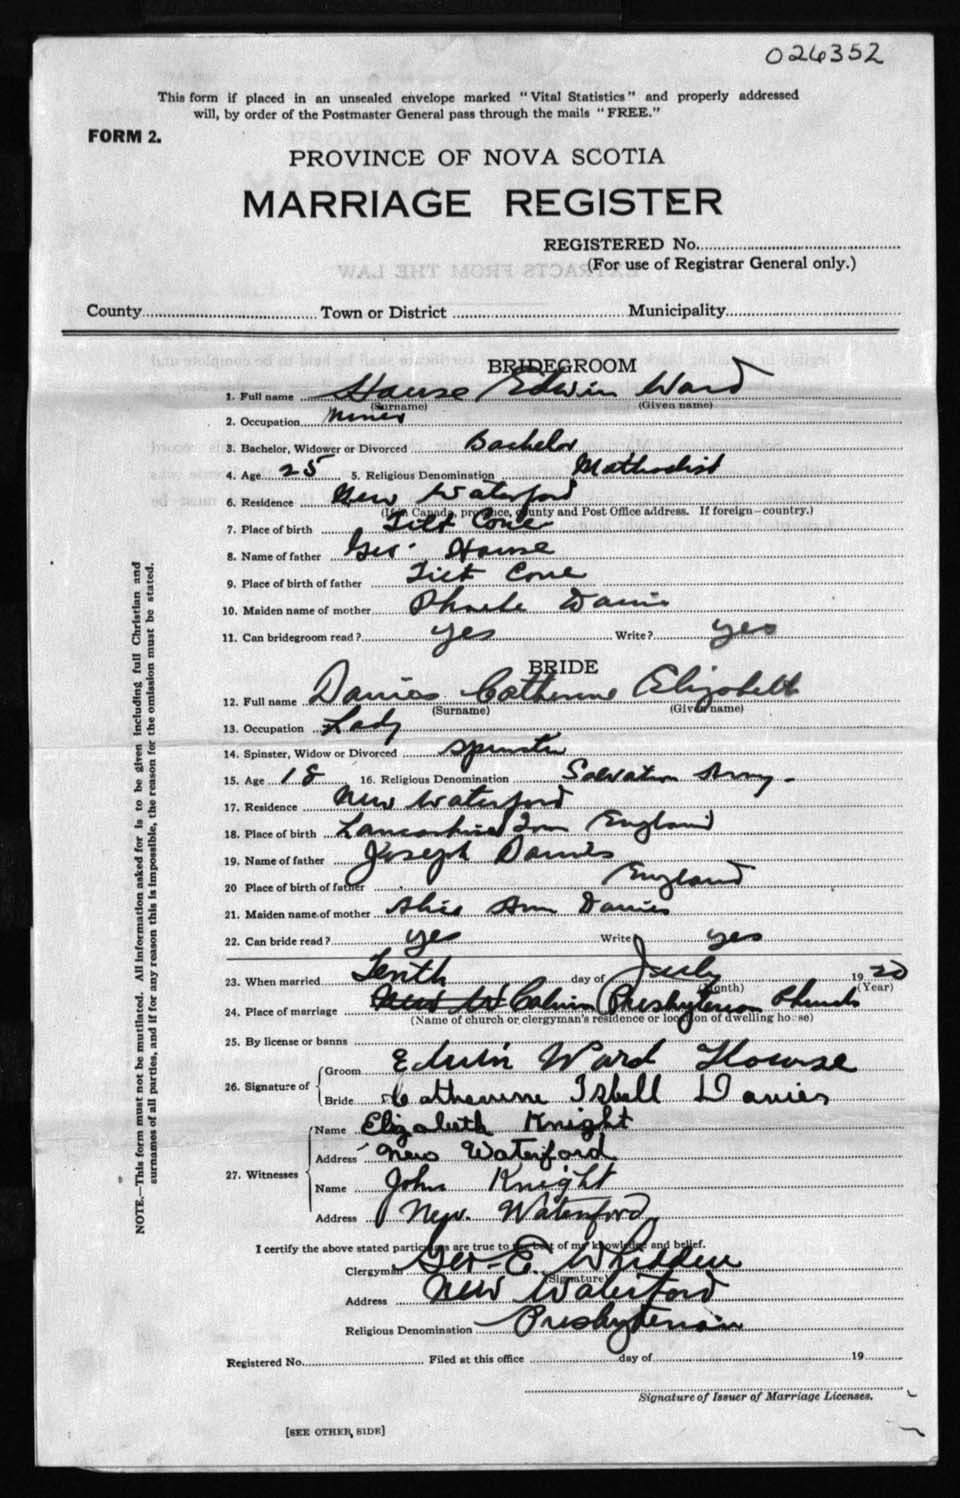 026352
This form if placed in an unsealed envelope marked "Vital Statistics" and properly addressed
will, by order of the Postmaster General pass through the mails "FREE."
FORM 2.
PROVINCE OF NOVA SCOTIA
MARRIAGE REGISTER
REGISTERED No.
(For use of Registrar General only.)
County Town or District Municipality
BRIDEGROOM
1. Full name House Edwin Ward
(Surname) (Given name)
2. Occupation Miner
3. Bachelor, Widower or Divorced Bachelor
4. Age 25 5. Religious Denomination Methodist
6. Residence New Waterford
(If in Canada, province, county and Post Office address. If foreign—country.)
7. Place of birth Tilt Cove
8. Name of father Geo. House
9. Place of birth of father Tilt Cove
10. Maiden name of mother Phoebe Davis
11. Can bridegroom read? yes Write? yes
BRIDE
12. Full name Davies Catherine Elizabeth
(Surname) (Given name)
13. Occupation Lady
14. Spinster, Widow or Divorced Spinster
15. Age 18 16. Religious Denomination Salvation Army.
17. Residence New Waterford
18. Place of birth Lancashire England
19. Name of father Joseph Davies
20 Place of birth of father England
21. Maiden name of mother Ann Davies
22. Can bride read? yes Write yes
23. When married Tenth day of July 1920
(Month) (Year)
24. Place of marriage New W Calvin Presbyterian Church
(Name of church or clergyman's residence or location of dwelling house)
25. By license or banns
26. Signature of
Groom Edwin Ward Howse
Bride Catherine Isbell Davies
27. Witnesses
Name Elizabeth Knight
Address New Waterford
Name John Knight
Address New Waterford
I certify the above stated particulars are true to the best of my knowledge and belief.
Clergyman Geo. E. Whidden
(Signature)
Address New Waterford
Religious Denomination Presbyterian
Registered No. Filed at this office day of 19
Signature of Issuer of Marriage Licenses.
[SEE OTHER SIDE]
NOTE.—This form must not be mutilated. All information asked for is to be given including full Christian and
surnames of all parties, and if for any reason this is impossible, the reason for the omission must be stated.
EXTRACTS FROM THE LAW